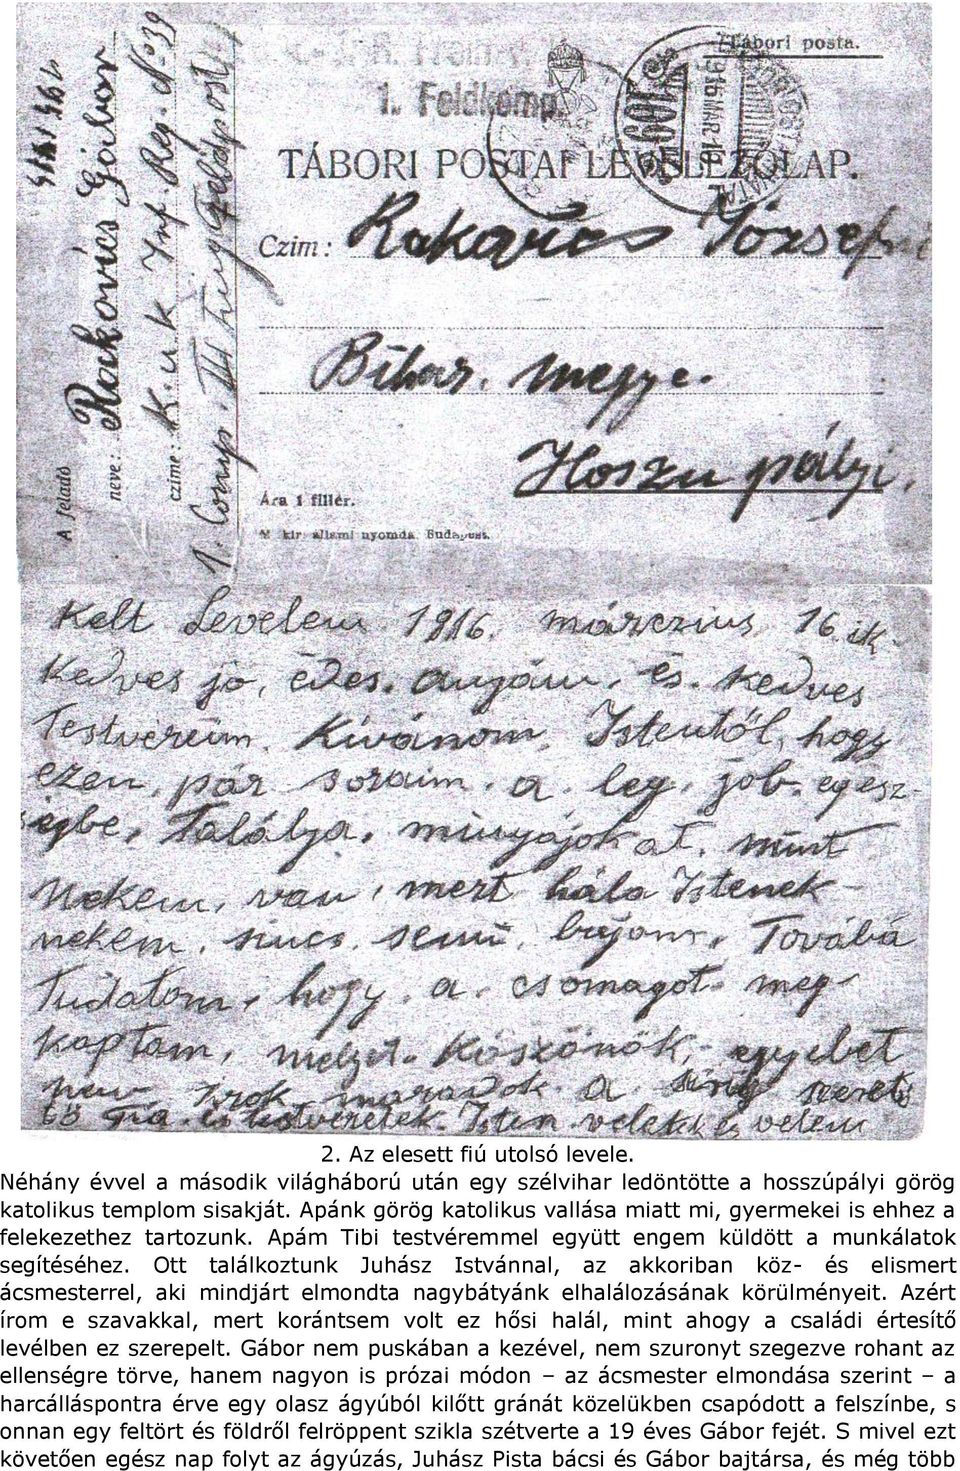 Tábori posta.
1. Feldkomp.
TÁBORI POSTAI LEVELEZŐLAP.
916 MÁR. 19
Czim: Rakovics József
Bihar. megye.
Hoszu pályi.
Ára 1 fillér.
M. kir. állami nyomda. Budapest.
A feladó
neve: Rakovics Gábor
czime: K. u. K. Inf. Reg. No 39
1. Comp. Feldpost
Kelt Levelem 1916. márczius 16.ik.
Kedves jó, édes. anyám, és. kedves
Testvéreim. Kívánom. Istentől, hogy
ezen, pár soraim. a. leg. job. egész-
ségbe, Találja, minyájokat. mint
Nekem, van, mert hála Istenek
nekem. nincs. semi, bajom, Továbá
Tudatom, hogy. a. csomagot meg
kaptam, melyet. Köszönök, egyebet
nem irok maradok a sirig szeret
tö Fia. és testvéretek. Isten veletek és velem
2. Az elesett fiú utolsó levele.
Néhány évvel a második világháború után egy szélvihar ledöntötte a hosszúpályi görög
katolikus templom sisakját. Apánk görög katolikus vallása miatt mi, gyermekei is ehhez a
felekezethez tartozunk. Apám Tibi testvéremmel együtt engem küldött a munkálatok
segítéséhez. Ott találkoztunk Juhász Istvánnal, az akkoriban köz- és elismert
ácsmesterrel, aki mindjárt elmondta nagybátyánk elhalálozásának körülményeit. Azért
írom e szavakkal, mert korántsem volt ez hősi halál, mint ahogy a családi értesítő
levélben ez szerepelt. Gábor nem puskában a kezével, nem szuronyt szegezve rohant az
ellenségre törve, hanem nagyon is prózai módon – az ácsmester elmondása szerint – a
harcálláspontra érve egy olasz ágyúból kilőtt gránát közelükben csapódott a felszínbe, s
onnan egy feltört és földről felröppent szikla szétverte a 19 éves Gábor fejét. S mivel ezt
követően egész nap folyt az ágyúzás, Juhász Pista bácsi és Gábor bajtársa, és még több